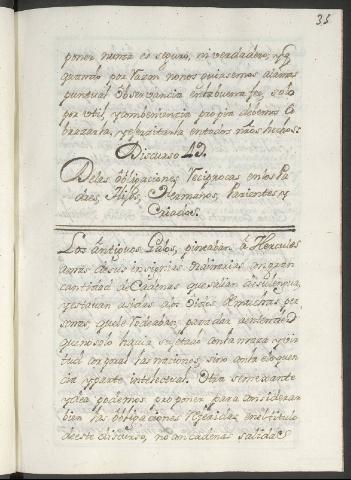 35
poner nunca es seguro, ni verdadero, y q.
quando por razon no nos quisiesemos a la mas
puntual observancia en la buena fee, solo
por util, y combeniencia propia debemos a
brazarla, y exercitarla en todos nros hechos:
Discurso 19.
De las obligaciones Reciprocas en los Pa
dres, Hijos, Hermanos, Parientes y
Criados.
Los Antiguos Galos, pintaban á Hercules
ademas de sus insignias ordinarias con gran
cantidad de Cadenas que salian de su lengua,
y estavan asidas a los oidos de muchas per
sonas, que le rodeaban: para dar a entender
que no solo havia sujetado con la maza y vir
tud corporal las naciones, sino con la eloquen
cia y parte intelectual. Otra semejante
ydea podemos proponer para considerar
bien las obligaciones referidas en el titulo
de este discurso, no con cadenas salidas